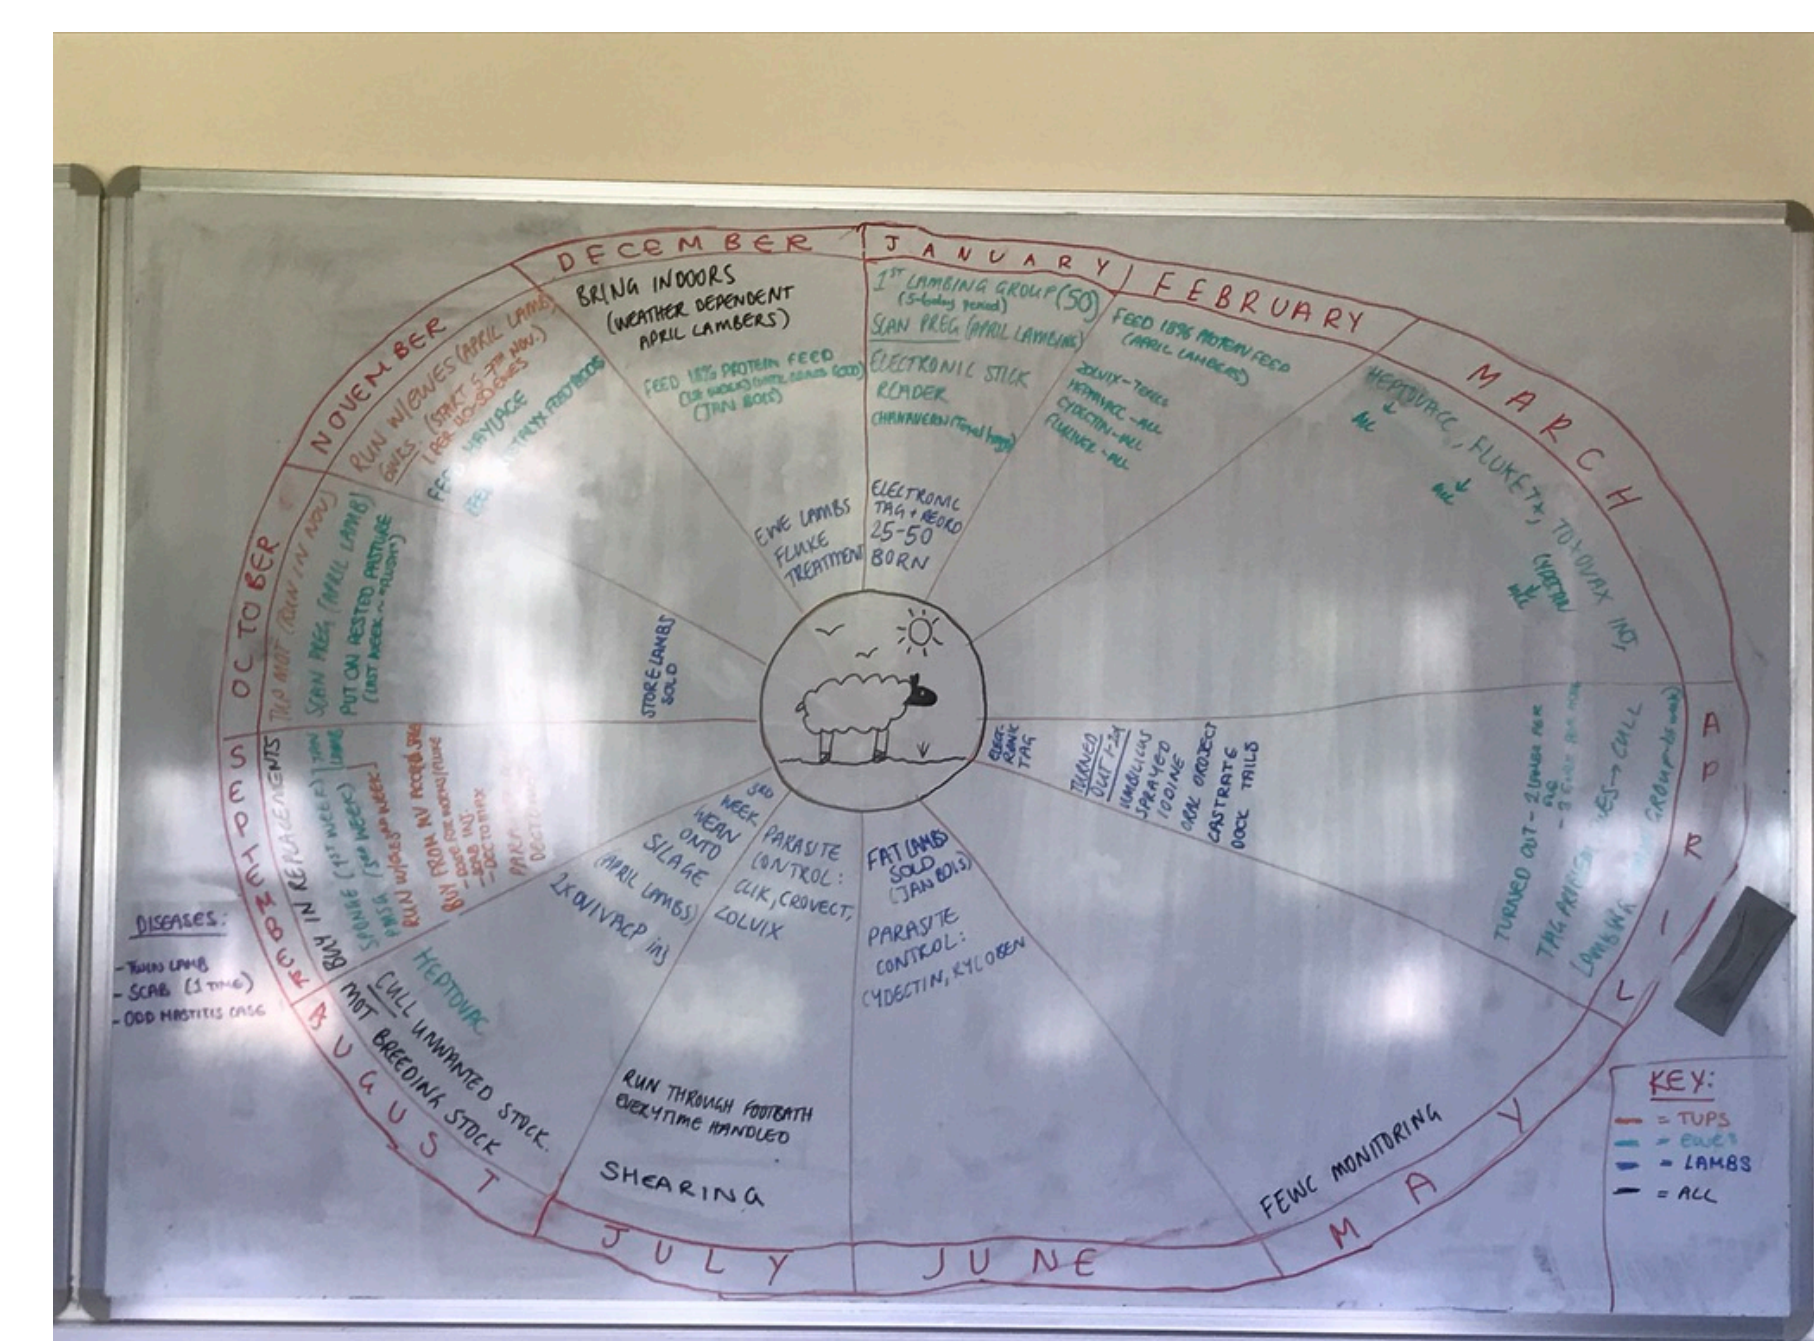 DECEMBER
BRING INDOORS
(WEATHER DEPENDENT
APRIL LAMBERS)
FEED 18% PROTEIN FEED
(JAN BOIS)
EWE LAMBS
FLUKE
TREATMENT
JANUARY
1ST LAMBING GROUP (50)
SCAN PREG (APRIL LAMBING)
ELECTRONIC STICK
READER
ELECTRONIC
TAG + RECORD
25-50
BORN
FEBRUARY
FEED 18% PROTEIN FEED
(APRIL LAMBERS)
HEPTAVACC - ALL
CYDECTIN - ALL
FLUKIVER - ALL
MARCH
HEPTOVACC, FLUKE TX, TOXOVAX INJ
ALL
ALL
CYDECTIN
ALL
APRIL
TURNED OUT - 2 LAMBS PER
TAG
LAMBING GROUP
ELECT-
RONIC
TAG
TURNED
OUT 1-2d
UMBILICUS
SPRAYED
IODINE
ORAL OROJECT
CASTRATE
DOCK TAILS
MAY
FEWC MONITORING
JUNE
FAT LAMBS
SOLD
(JAN BOIS)
PARASITE
CONTROL:
CYDECTIN, KYLOBEN
JULY
PARASITE
CONTROL:
CLIK, CROVECT,
ZOLVIX
RUN THROUGH FOOTBATH
EVERYTIME HANDLED
SHEARING
AUGUST
3RD
WEEK
WEAN
ONTO
SILAGE
(APRIL LAMBS)
2X OVIVACP inj
HEPTOVAC
CULL UNWANTED STOCK.
MOT BREEDING STOCK
SEPTEMBER
BUY IN REPLACEMENTS
SPONGE (1ST WEEK) JAN
PMSG (3RD WEEK) LAMB
RUN W/
BUY FROM NV
- SCAB INJ.
- DECTOMAX
OCTOBER
TUP MOT (RUN IN NOV)
SCAN PREG (APRIL LAMB)
PUT ON RESTED PASTURE
(LAST WEEK ~ FLUSH)
STORE LAMBS
SOLD
NOVEMBER
RUN W/ EWES (APRIL LAMB)
6WKS. (START 5-7TH NOV.)
1 PER 40-50 EWES
FEED HAYLAGE
DISEASES:
- TWIN LAMB
- SCAB (1 TIME)
- ODD MASTITIS CASE
KEY:
= TUPS
= EWES
= LAMBS
= ALL